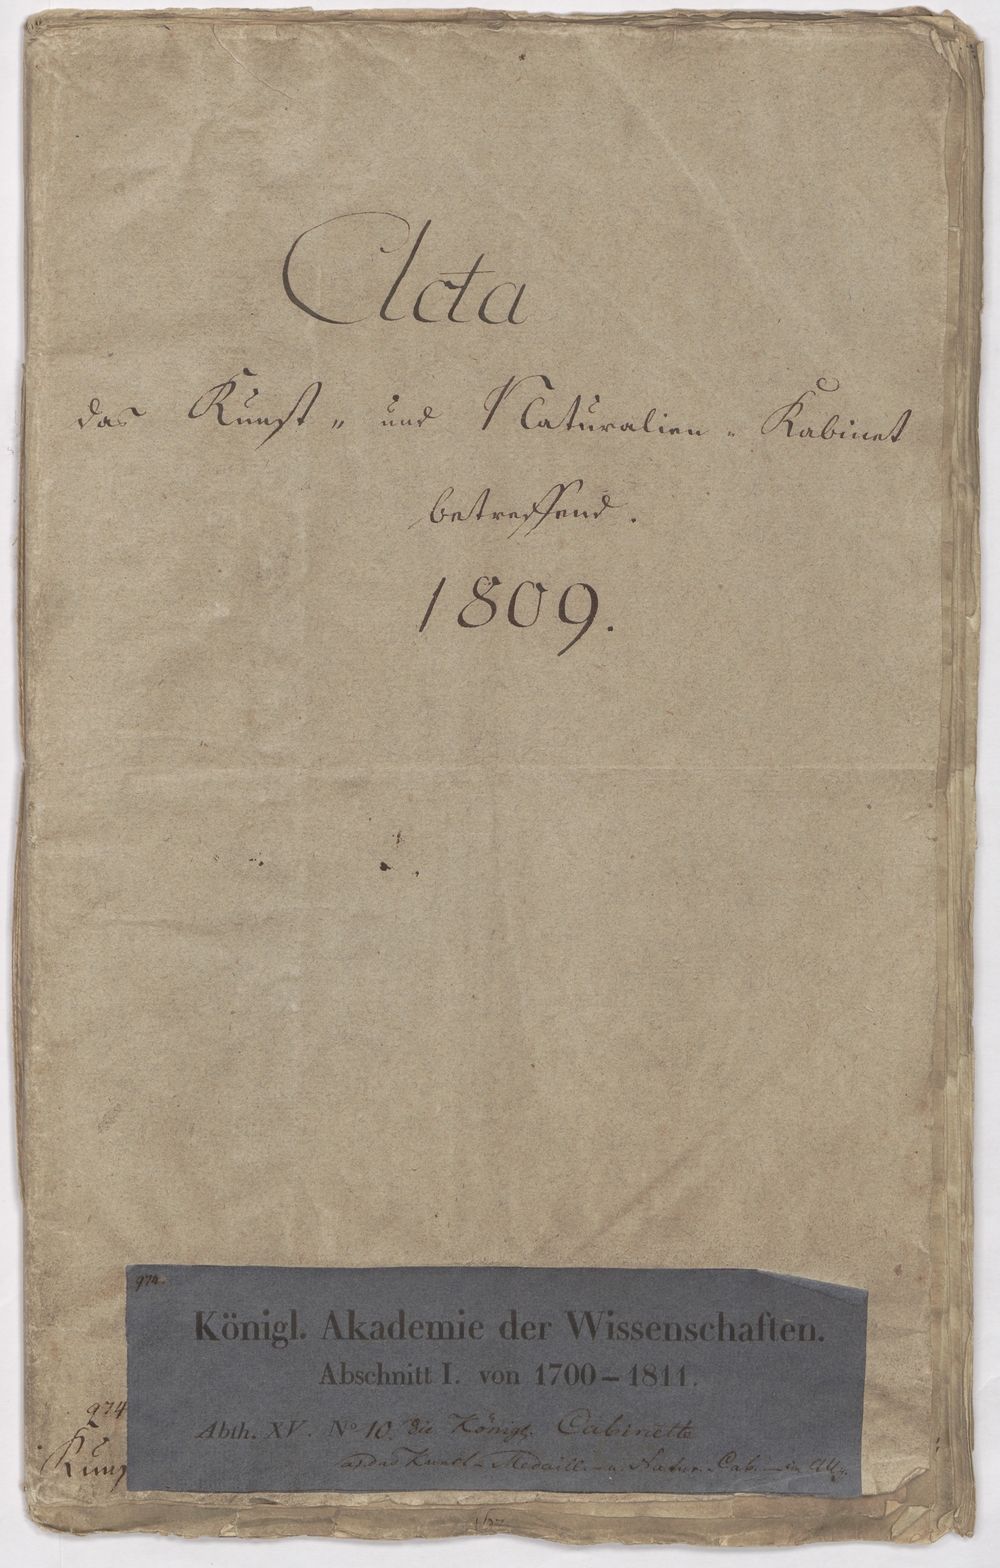 Acta
das Kunst- und Naturalien-Kabinet
betreffend.
1809.
974.
Königl. Akademie der Wissenschaften.
Abschnitt I. von 1700–1811.
Abth. XV. No 10. die Königl. Cabinette
das Kunst- Medaill. u. Natur. Cab.
974
Kuns